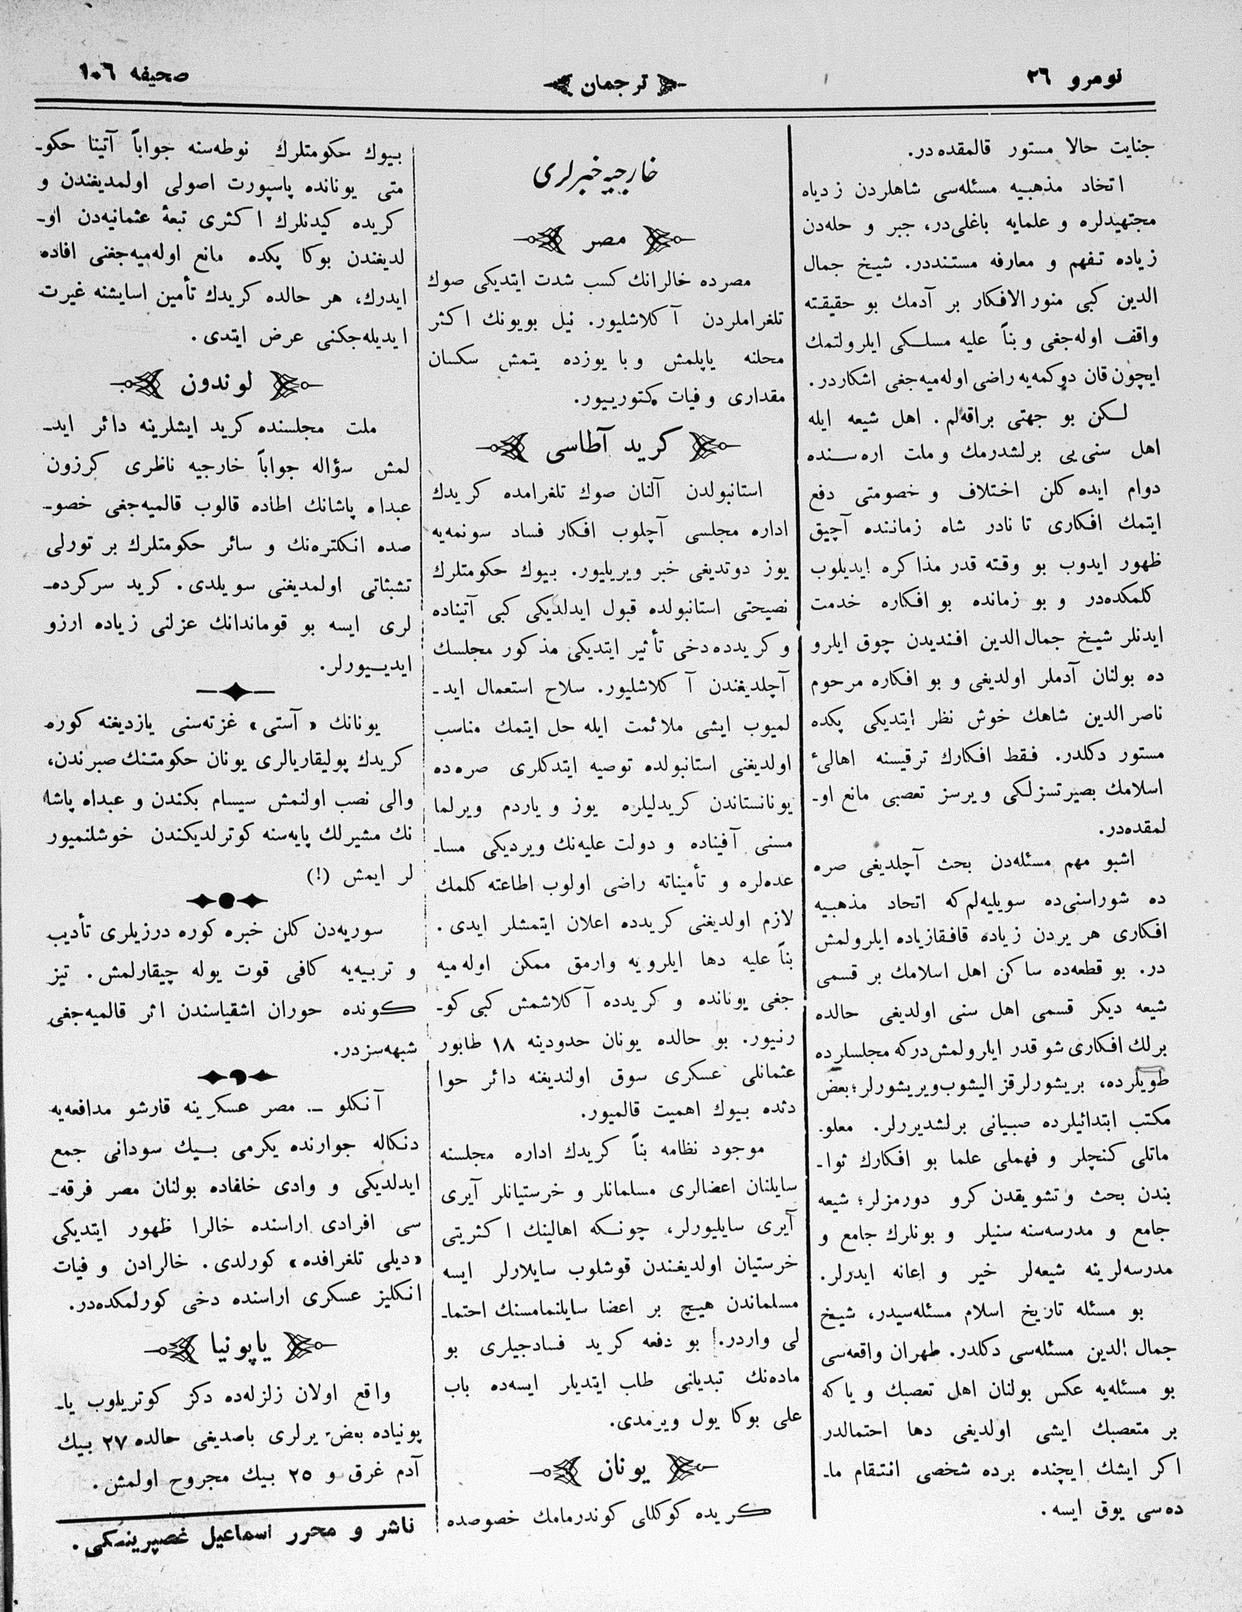 نومرو ٢٦
ترجمان
صحیفه ١٠٦
جنایت حالا مستور قالمقده‌در.
اتحاد مذهبیه مسئله‌سی شاهلردن زیاده
مجتهیدلره و علمایه باغلی‌در، جبر و حله‌دن
زیاده تفهم و معارفه مستنددر. شیخ جمال
الدین کبی منور الافکار بر آدمك بو حقیقته
واقف اوله‌جغی و بناً علیه مسلکی ایلرولتمك
ایچون قان دوکمه‌یه راضی اوله‌میه‌جغی اشکاردر.
لکن بو جهتی براقه‌لم. اهل شیعه ایله
اهل سنی‌یی برلشدرمك و ملت اره‌سنده
دوام ایده کلن اختلاف و خصومتی دفع
ایتمك افکاری تا نادر شاه زماننده آچیق
ظهور ایدوب بو وقته قدر مذاکره ایدیلوب
کلمکده‌در و بو زمانده بو افکاره خدمت
ایدنلر شیخ جمال‌الدین افندیدن چوق ایلرو
ده بولنان آدملر اولدیغی و بو افکاره مرحوم
ناصر الدین شاهك خوش نظر ایتدیکی پکده
مستور دکلدر. فقط افکارك ترقیسنه اهالیٔ
اسلامك بصیرتسزلکی و یرسز تعصبی مانع او-
لمقده‌در.
اشبو مهم مسئله‌دن بحث آچلدیغی صره
ده شوراسنی‌ده سویلیه‌لم‌که اتحاد مذهبیه
افکاری هر یردن زیاده قافقازیاده ایلرولمش
در. بو قطعه‌ده ساکن اهل اسلامك بر قسمی
شیعه دیکر قسمی اهل سنی اولدیغی حالده
برلك افکاری شو قدر ایلرولمش‌درکه مجلسلرده
طویلرده، بریشورلرقز الیشوب‌ویریشورلر؛ بعض
مکتب ابتدائیلرده صبیانی برلشدیررلر. معلو.
ماتلی کنجلر و فهملی علما بو افکارك ثوا-
بندن بحث و تشویقدن کرو دورمزلر؛ شیعه
جامع و مدرسه‌سنه سنیلر و بونلرك جامع و
مدرسه‌لرینه شیعه‌لر خیر و اعانه ایدرلر.
بو مسئله تاریخ اسلام مسئله‌سیدر، شیخ
جمال الدین مسئله‌سی دکلدر. طهران واقعه‌سی
بو مسئله‌یه عکس بولنان اهل تعصبك و یاکه
بر متعصبك ایشی اولدیغی دها احتمالدر
اکر ایشك ایچنده برده شخصی انتقام ما-
ده‌سی یوق ایسه.
خارجیه خبرلری
مصر
مصرده خالرانك کسب شدت ایتدیکی صوك
تلغراملردن آکلاشلیور. نیل بویونك اکثر
محلنه یاپلمش وبا یوزده یتمش سکسان
مقداری وفیات کتورییور.
کرید آطاسی
استانبولدن آلنان صوك تلغرامده کریدك
اداره مجلسی آچلوب افکار فساد سونمه‌یه
یوز دوتدیغی خبر ویریلیور. بیوك حکومتلرك
نصیحتی استانبولده قبول ایدلدیکی کبی آتیناده
و کریدده‌دخی تأثیر ایتدیکی مذکور مجلسك
آچلدیغندن آکلاشلیور. سلاح استعمال اید-
لمیوب ایشی ملائمت ایله حل ایتمك مناسب
اولدیغنی استانبولده توصیه ایتدکلری صره‌ده
یونانستاندن کریدلیلره یوز و یاردم ویرلما
مسنی آفیناده و دولت علیه‌نك ویردیکی مسا-
عده‌لره و تأمیناته راضی اولوب اطاعته کلمك
لازم اولدیغنی کریدده اعلان ایتمشلر ایدی.
بناً علیه دها ایلرویه وارمق ممکن اوله‌میه
جغی یونانده و کریدده آکلاشمش کبی کو-
رنیور. بو حالده یونان حدودینه ١٨ طابور
عثمانلی عسکری سوق اولندیغنه دائر حوا
دثده بیوك اهمیت قالمیور.
موجود نظامه بناً کریدك اداره مجلسنه
سایلنان اعضالری مسلمانلر و خرستیانلر آیری
آیری سایلیورلر، چونکه اهالینك اکثریتی
خرستیان اولدیغندن قوشلوب سایلارلر ایسه
مسلماندن هیچ بر اعضا سایلنمامسنك احتما-
لی واردر. بو دفعه کرید فسادجیلری بو
ماده‌نك تبدیلنی طلب ایتدیلر ایسه‌ده باب
علی بوکا یول ویرمدی.
یونان
کریده کوکللی کوندرمامك خصوصده
بیوك حکومتلرك نوطه‌سنه جواباً آتینا حکو-
متی یونانده پاسپورت اصولی اولمدیغندن و
کریده کیدنلرك اکثری تبعهٔ عثمانیه‌دن او-
لدیغندن بوکا پکده مانع اوله‌میه‌جغنی افاده
ایدرك، هر حالده کریدك تأمین اسایشنه غیرت
ایدیله‌جکنی عرض ایتدی.
لوندون
ملت مجلسنده کرید ایشلرینه دائر اید-
لمش سؤاله جواباً خارجیه ناظری کرزون
عبداه پاشانك اطاده قالوب قالمیه‌جغی خصو-
صده انکلتره‌نك و سائر حکومتلرك بر تورلی
تشبثاتی اولمدیغنی سویلدی. کرید سرکرده-
لری ایسه بو قوماندانك عزلنی زیاده ارزو
ایدییورلر.
یونانك «آستی» غزته‌سنی یازدیغنه کوره
کریدك پولیقاریالری یونان حکومتنك صبرندن،
والی نصب اولنمش سیسام بکندن و عبداه پاشا
نك مشیرلك پایه‌سنه کوترلدیکندن خوشلنمیور
لر ایمش (!)
سوریه‌دن کلن خبره کوره درزیلری تأدیب
و تربیه‌یه کافی قوت یوله چیقارلمش. تیز
کونده حوران اشقیاسندن اثر قالمیه‌جغی
شبهه‌سزدر.
آنکلو — مصر عسکرینه قارشو مدافعه‌یه
دنکاله جوارنده یکرمی بیك سودانی جمع
ایدلدیکی و وادی خلفاده بولنان مصر فرقه-
سی افرادی اراسنده خالرا ظهور ایتدیکی
«دیلی تلغرافده» کورلدی. خالرادن وفیات
انکلیز عسکری اراسنده دخی کورلمکده‌در.
یاپونیا
واقع اولان زلزله‌ده دکز کوتریلوب یا-
پونیاده بعض یرلری باصدیغی حالده ٢٧ بیك
آدم غرق و ٢٥ بیك مجروح اولمش.
ناشر و محرر اسماعیل غصپرینسکی.